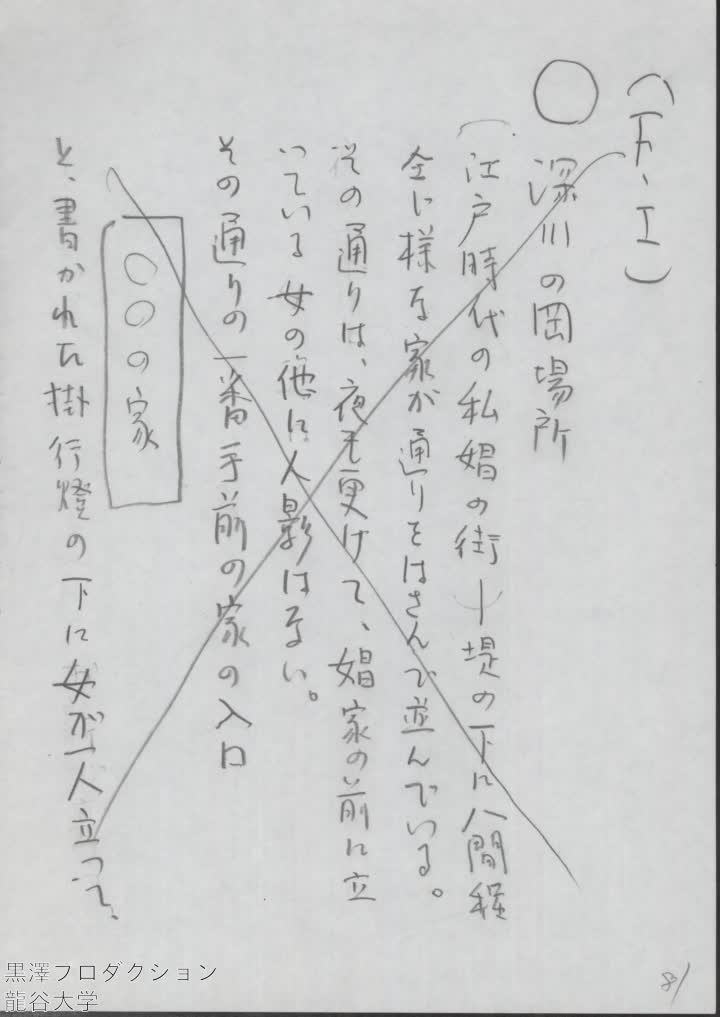 (F、I)
○ 深川の岡場所
(江戸時代の私娼の街)堤の下に八間程
全じ様な家が通りをはさんで並んでいる。
その通りは、夜も更けて、娼家の前に立
っている女の他に人影はない。
その通りの一番手前の家の入口
○○の家
と、書かれた掛行燈の下に女が一人立って、
81
黒澤プロダクション
龍谷大学